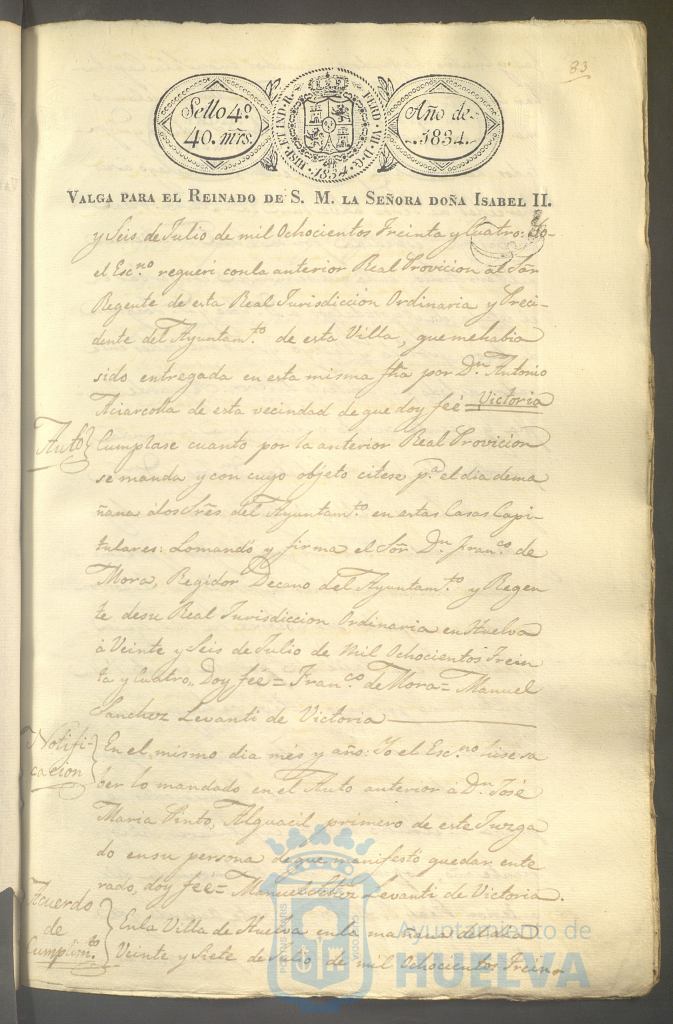 83
Sello 4º
40. mrs.
HISP. ET IND. R. FERD. VII. D. G. 1834.
Año de
1834.
VALGA PARA EL REINADO DE S. M. LA SEÑORA DOÑA ISABEL II.
y Seis de Julio de mil Ochocientos Treinta y Cuatro: Yo
el Esc.no requeri con la anterior Real Provicion al Sor
Regente de esta Real Jurisdiccion Ordinaria y Preci-
dente del Ayuntam.to de esta Villa, que me habia
sido entregada en esta misma fha por Dn. Antonio
de esta vecindad de que doy feé = Victoria
Auto
Cumplase cuanto por la anterior Real Provicion
se manda y con cuyo objeto citese p.a el dia de ma
ñana á los Sres. del Ayuntam.to en estas Casas Capi-
tulares: Lo mandó y firma el Sor. Dn. Fran.co de
Mora, Regidor Decano del Ayuntam.to y Regen
te de su Real Jurisdiccion Ordinaria en Huelva
á Veinte y Seis de Julio de Mil Ochocientos Trein
ta y Cuatro,, Doy feé = Fran.co de Mora = Manuel
Sanchez Levanti de Victoria
Notifi-
cacion
En el mismo dia més y año: Yo el Esc.no hise sa
ber lo mandado en el Auto anterior á Dn. José
Maria Pinto, Alguacil primero de este Juzga
do en su persona de que manifestó quedar ente
rado, doy feé = Manuel Levanti de Victoria.
Acuerdo
de
Cumplim.to
En la Villa de Huelva en la mañana del dia
Veinte y Siete de Julio de mil Ochocientos Trein
Ayuntamiento de
HUELVA